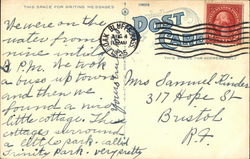 THIS SPACE FOR WRITING MESSAGES
POST
CARD
We were on the
water from
nine until
3 P.M. We took
a buss up town
and then we
found a nice
little cottage. The
cottages surround
a little park. called
Trinity Park. very pretty
OAK BLUFFS
AUG
MASS.
Mrs Samuel Kinder
317 Hope St
Bristol
R.I.